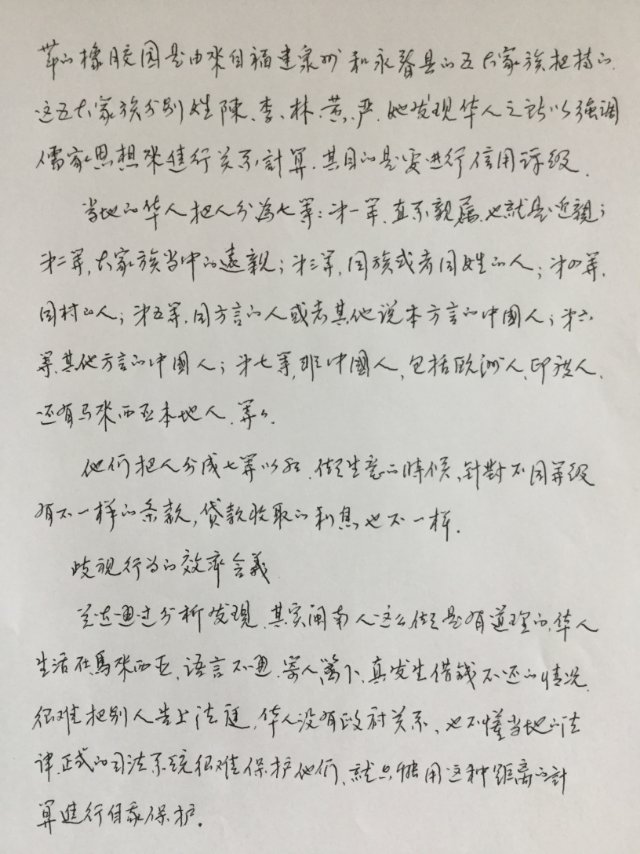 华人橡胶园是由来自福建泉州和永春县的五大家族把持的.
这五大家族分别姓陳、李、林、黄、严.她发现华人之所以强调
儒家思想来進行关系計算.其目的是要進行信用評级.
当地的华人把人分為七等:第一等,直系親属.也就是近親;
第二等,大家族当中的遠親;第三等,同族或者同姓的人;第四等,
同村的人;第五等,同方言的人或者其他说本方言的中國人;第六
等.其他方言的中國人;第七等,非中國人,包括欧洲人、印族人、
还有马來西亚本地人.等々.
他们把人分成七等以后.做生意的時候,針對不同等级
有不一样的条款,贷款收取的利息也不一样.
歧视行为的效率含義
兰达通过分析发现.其实闽南人这么做是有道理的,华人
生活在馬來西亚,语言不通.寄人篱下.真发生借钱不还的情况.
很难把别人告上法庭,华人没有政府关系、也不懂当地的法
律.正式的司法系统很难保护他们、就只能用这种距離的計
算進行自我保护.